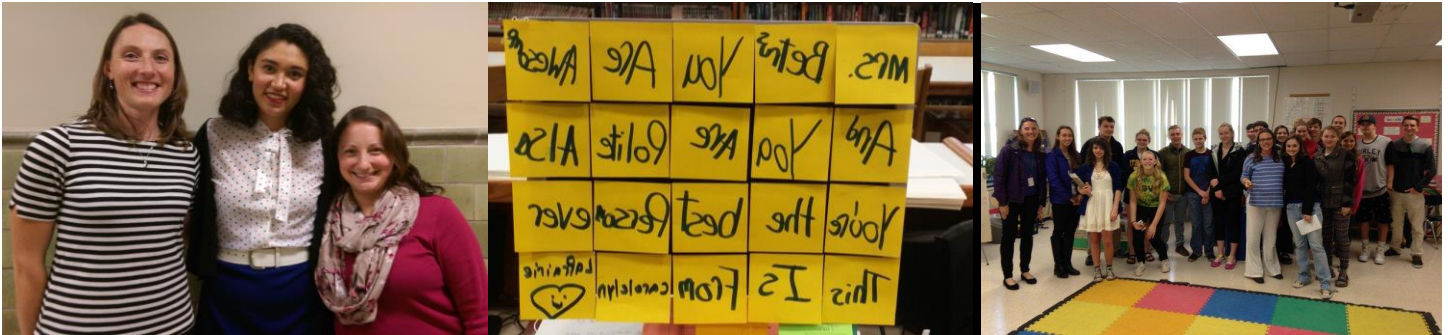 Mrs. You Are
And You Are Polite Also
You're the best Person ever
This Is From Carolelyn LaPrairie